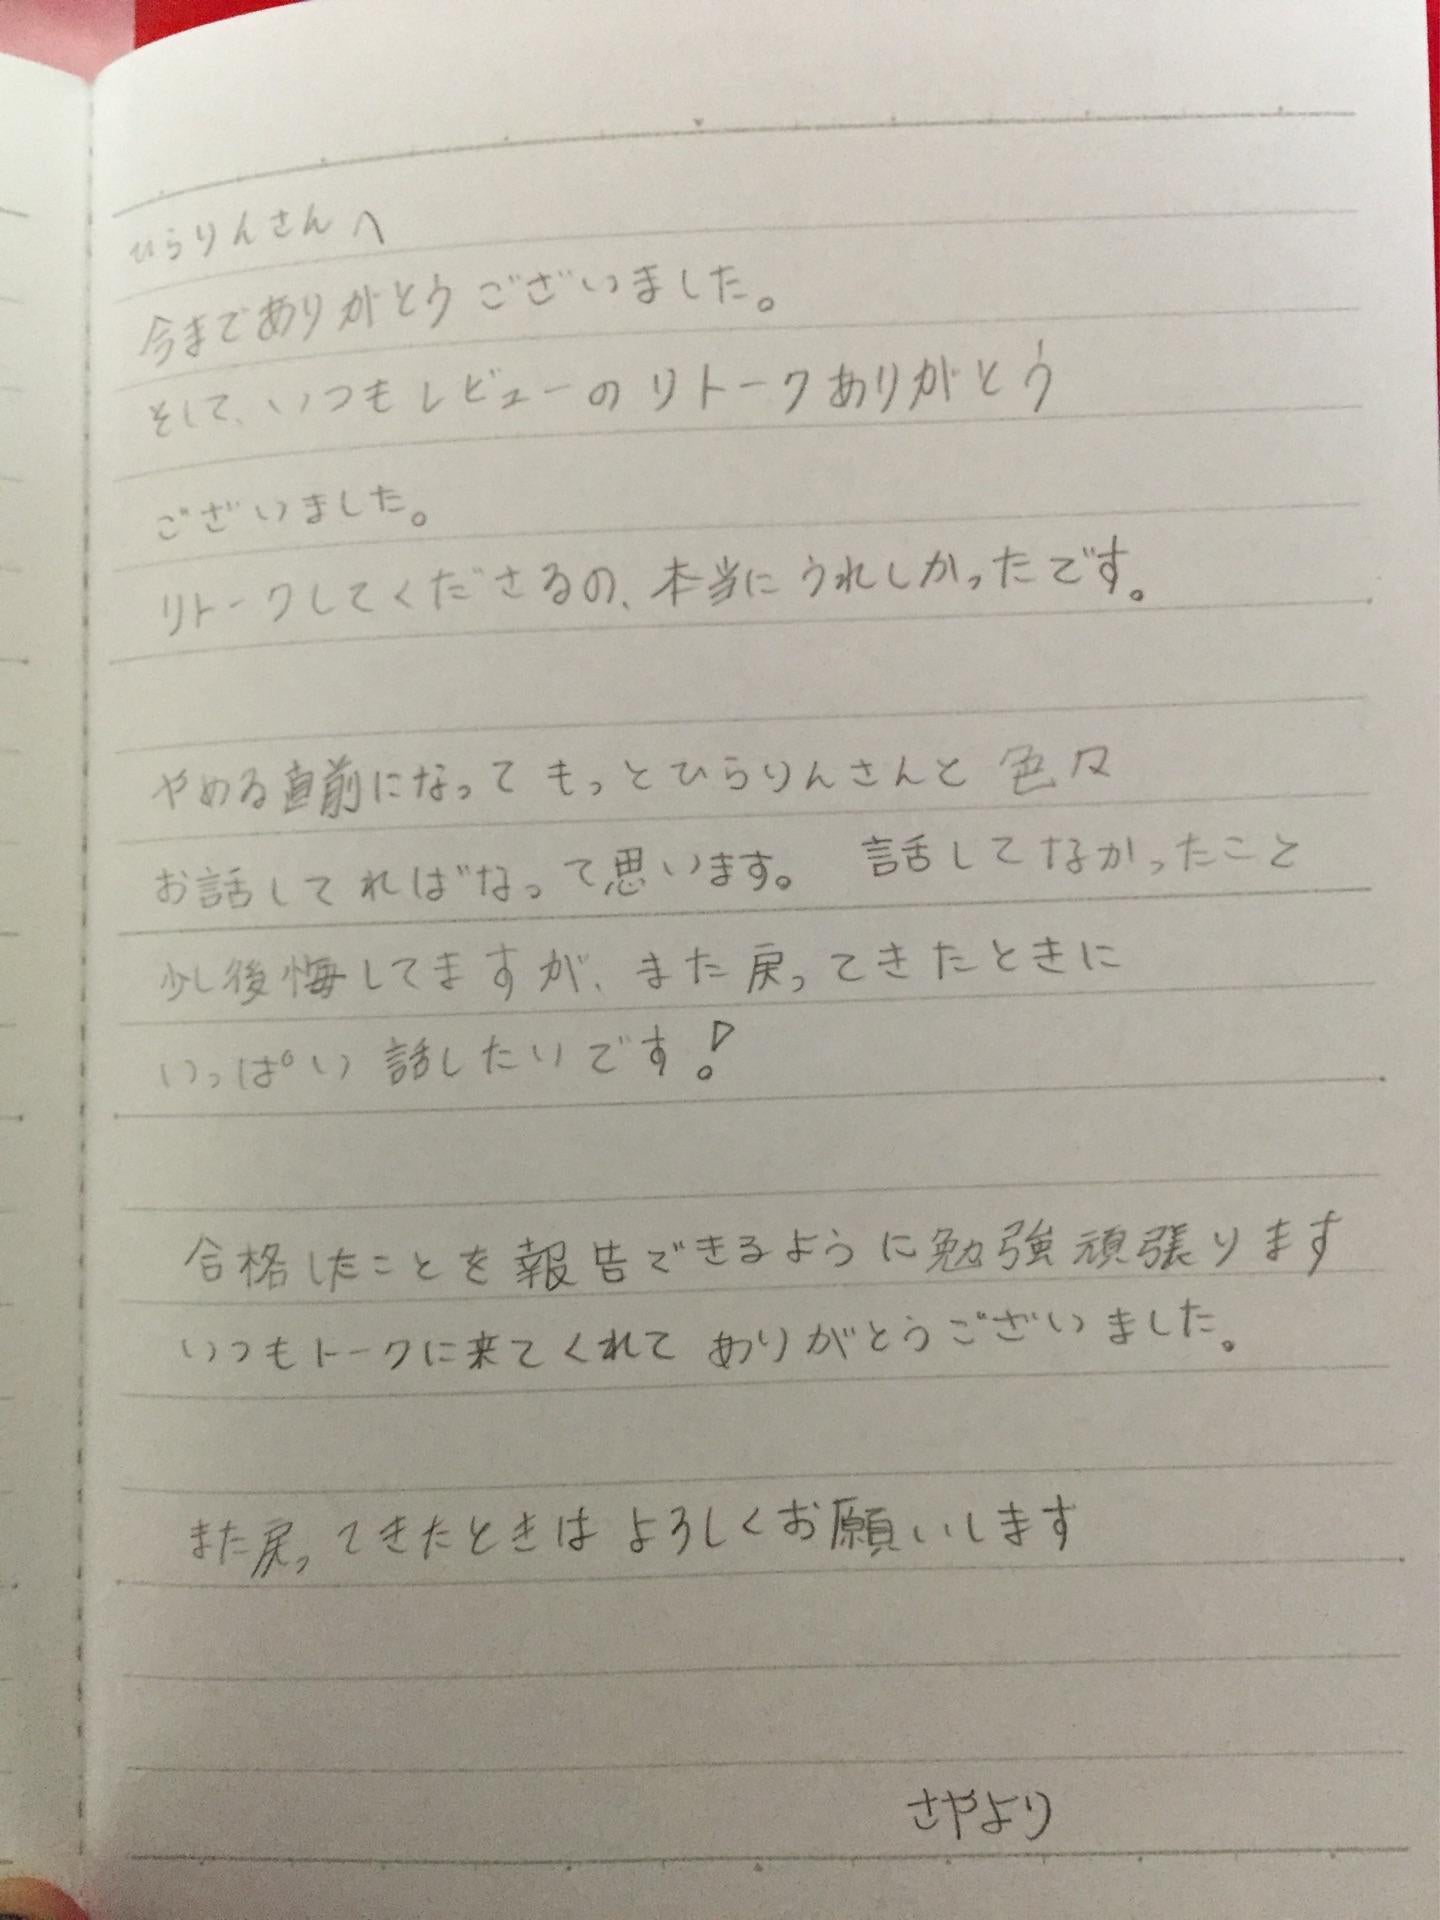 ひらりんさんへ
今までありがとうございました。
そして、いつもレビューのリトークありがとう
ございました。
リトークしてくださるの、本当にうれしかったです。
やめる直前になってもっとひらりんさんと色々
お話してればなって思います。 話してなかったこと
少し後悔してますが、また戻ってきたときに
いっぱい話したいです!
合格したことを報告できるように勉強頑張ります
いつもトークに来てくれてありがとうございました。
また戻ってきたときはよろしくお願いします
さやより